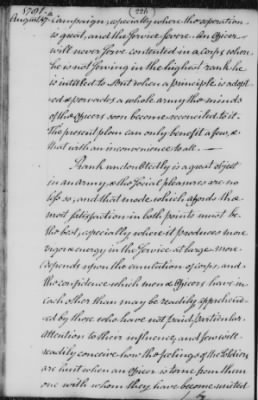 1781.
August 7.
(226)
Campaign, especially where the operation
is great, and the Service severe. An Officer
will never serve contented in a Corps when
he is not serving in the highest rank he
is intitled to. But when a principle is adopt-
ed & pervades a whole army the minds
of the Officers soon become reconciled to it.
The present plan can only benefit a few, &
that with an inconvenience to all.—
Rank undoubtedly is a great object
in an army, & the social pleasures are no
less so, and that mode which affords the
most satisfaction in both points must be
the best, especially where it produces more
vigor & energy in the Service at large. More
depends upon the emulation of corps, and
the confidence which men & Officers have in
each other than may be readily apprehend-
ed by those who have not paid particular
attention to their influence, and few will
readily conceive how the feelings of the Soldiers
are hurt when an Officer is torne from them
one with whom they have become united
by